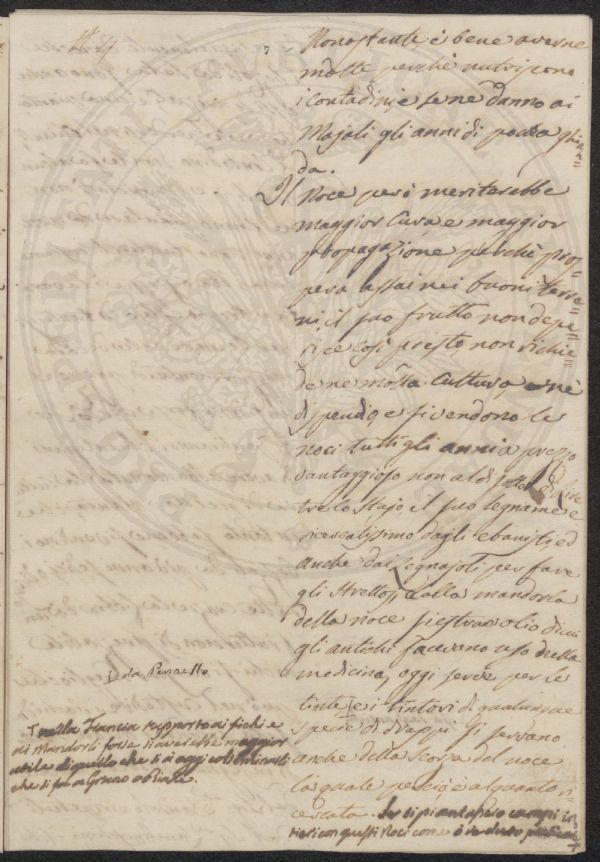 Nonostante è bene averne
molte perchè nutriscono
i Contadini, e se ne danno ai
Majali gli anni di poca ghian=
da.
Il Noce però meriterebbe
maggior Cura e maggior
propagazione perchè pros=
pera assai nei buoni terre=
ni, il suo frutto non depe=
risce così presto, non richie=
de ne molta Cultura, nè
dispendio, e si vendono le
noci tutti gli anni a prezzo
vantaggioso non al di sotto di Lire
tre lo Stajo il suo legname è
ricercatissimo dagli ebanisti, ed
anche dai Legnajoli per fare
gli Strettoj, dalla mandorla
della noce si estrae olio di cui
gli antichi facevano uso nella
medicina, oggi serve per le
tinte, e i tintori di qualunque
specie di drappi si servano
anche della Scorza del noce
la quale perciò è alquanto ri=
cercata. Se si piantassero campi in=
tieri con questi Noci come ò veduto praticare
da Pennello
nella Francia rapporto ai fichi e
ai Mandorli forse si averebbe maggior
utile di quello che si à oggi col
che si fa a Grano o Biade.